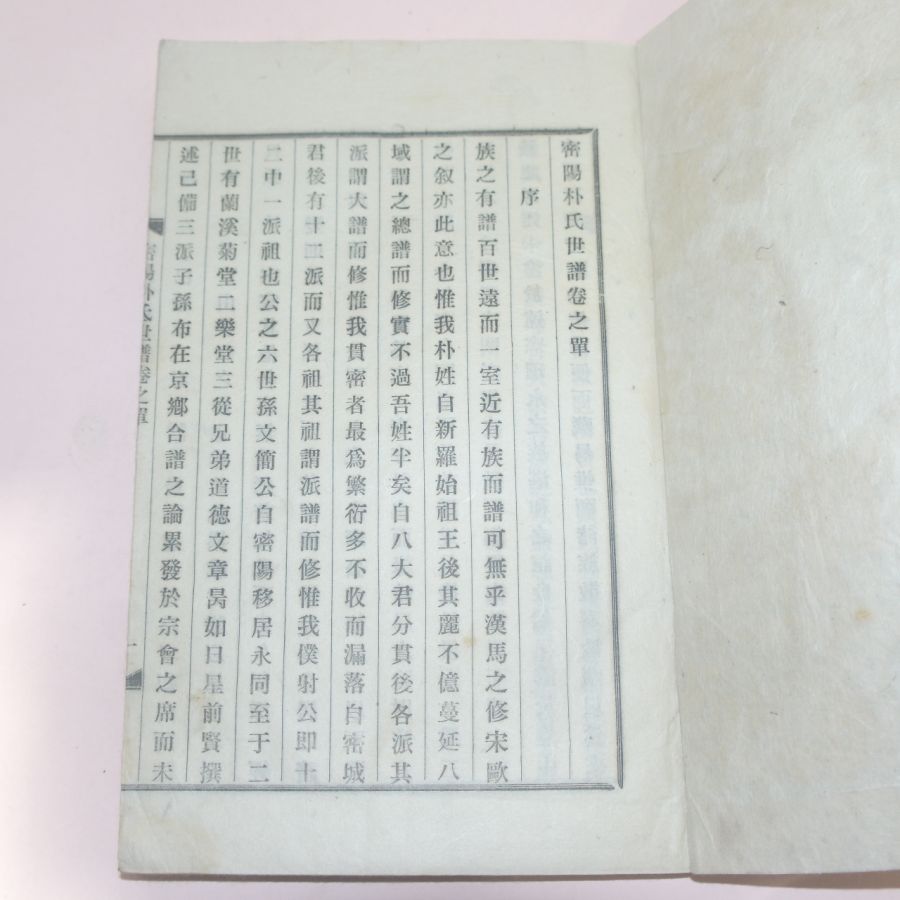 密陽朴氏世譜卷之單
序
族之有譜百世遠而一室近有族而譜可無乎漢馬之修宋歐
之叙亦此意也惟我朴姓自新羅始祖王後其麗不億蔓延八
域謂之總譜而修實不過吾姓半矣自八大君分貫後各派其
派謂大譜而修惟我貫密者最爲繁衍多不收而漏落自密城
君後有十二派而又各祖其祖謂派譜而修惟我僕射公即十
二中一派祖也公之六世孫文簡公自密陽移居永同至于二
世有蘭溪菊堂二樂堂三從兄弟道德文章昺如日星前賢撰
述己備三派子孫布在京鄉合譜之論累發於宗會之席而未
密陽朴氏世譜卷之單
一